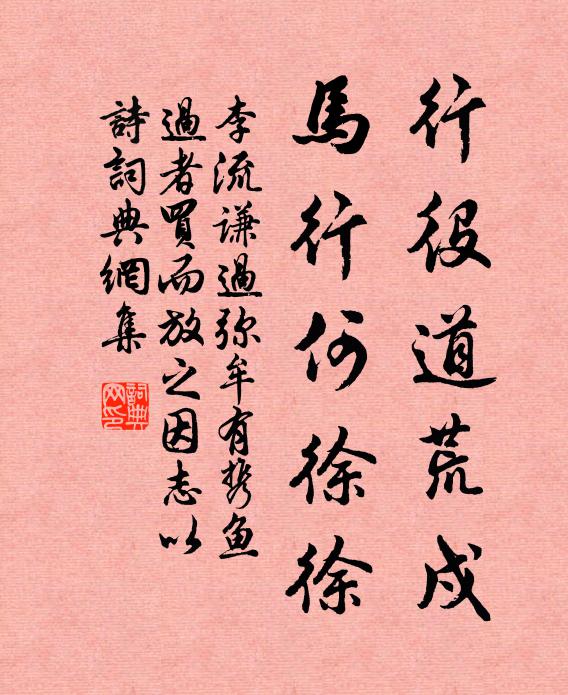 行役道荒戍
馬行何徐徐
李流謙過弥牟有携鱼
過者買而放之因志以
詩詞典網集
詞典
网印